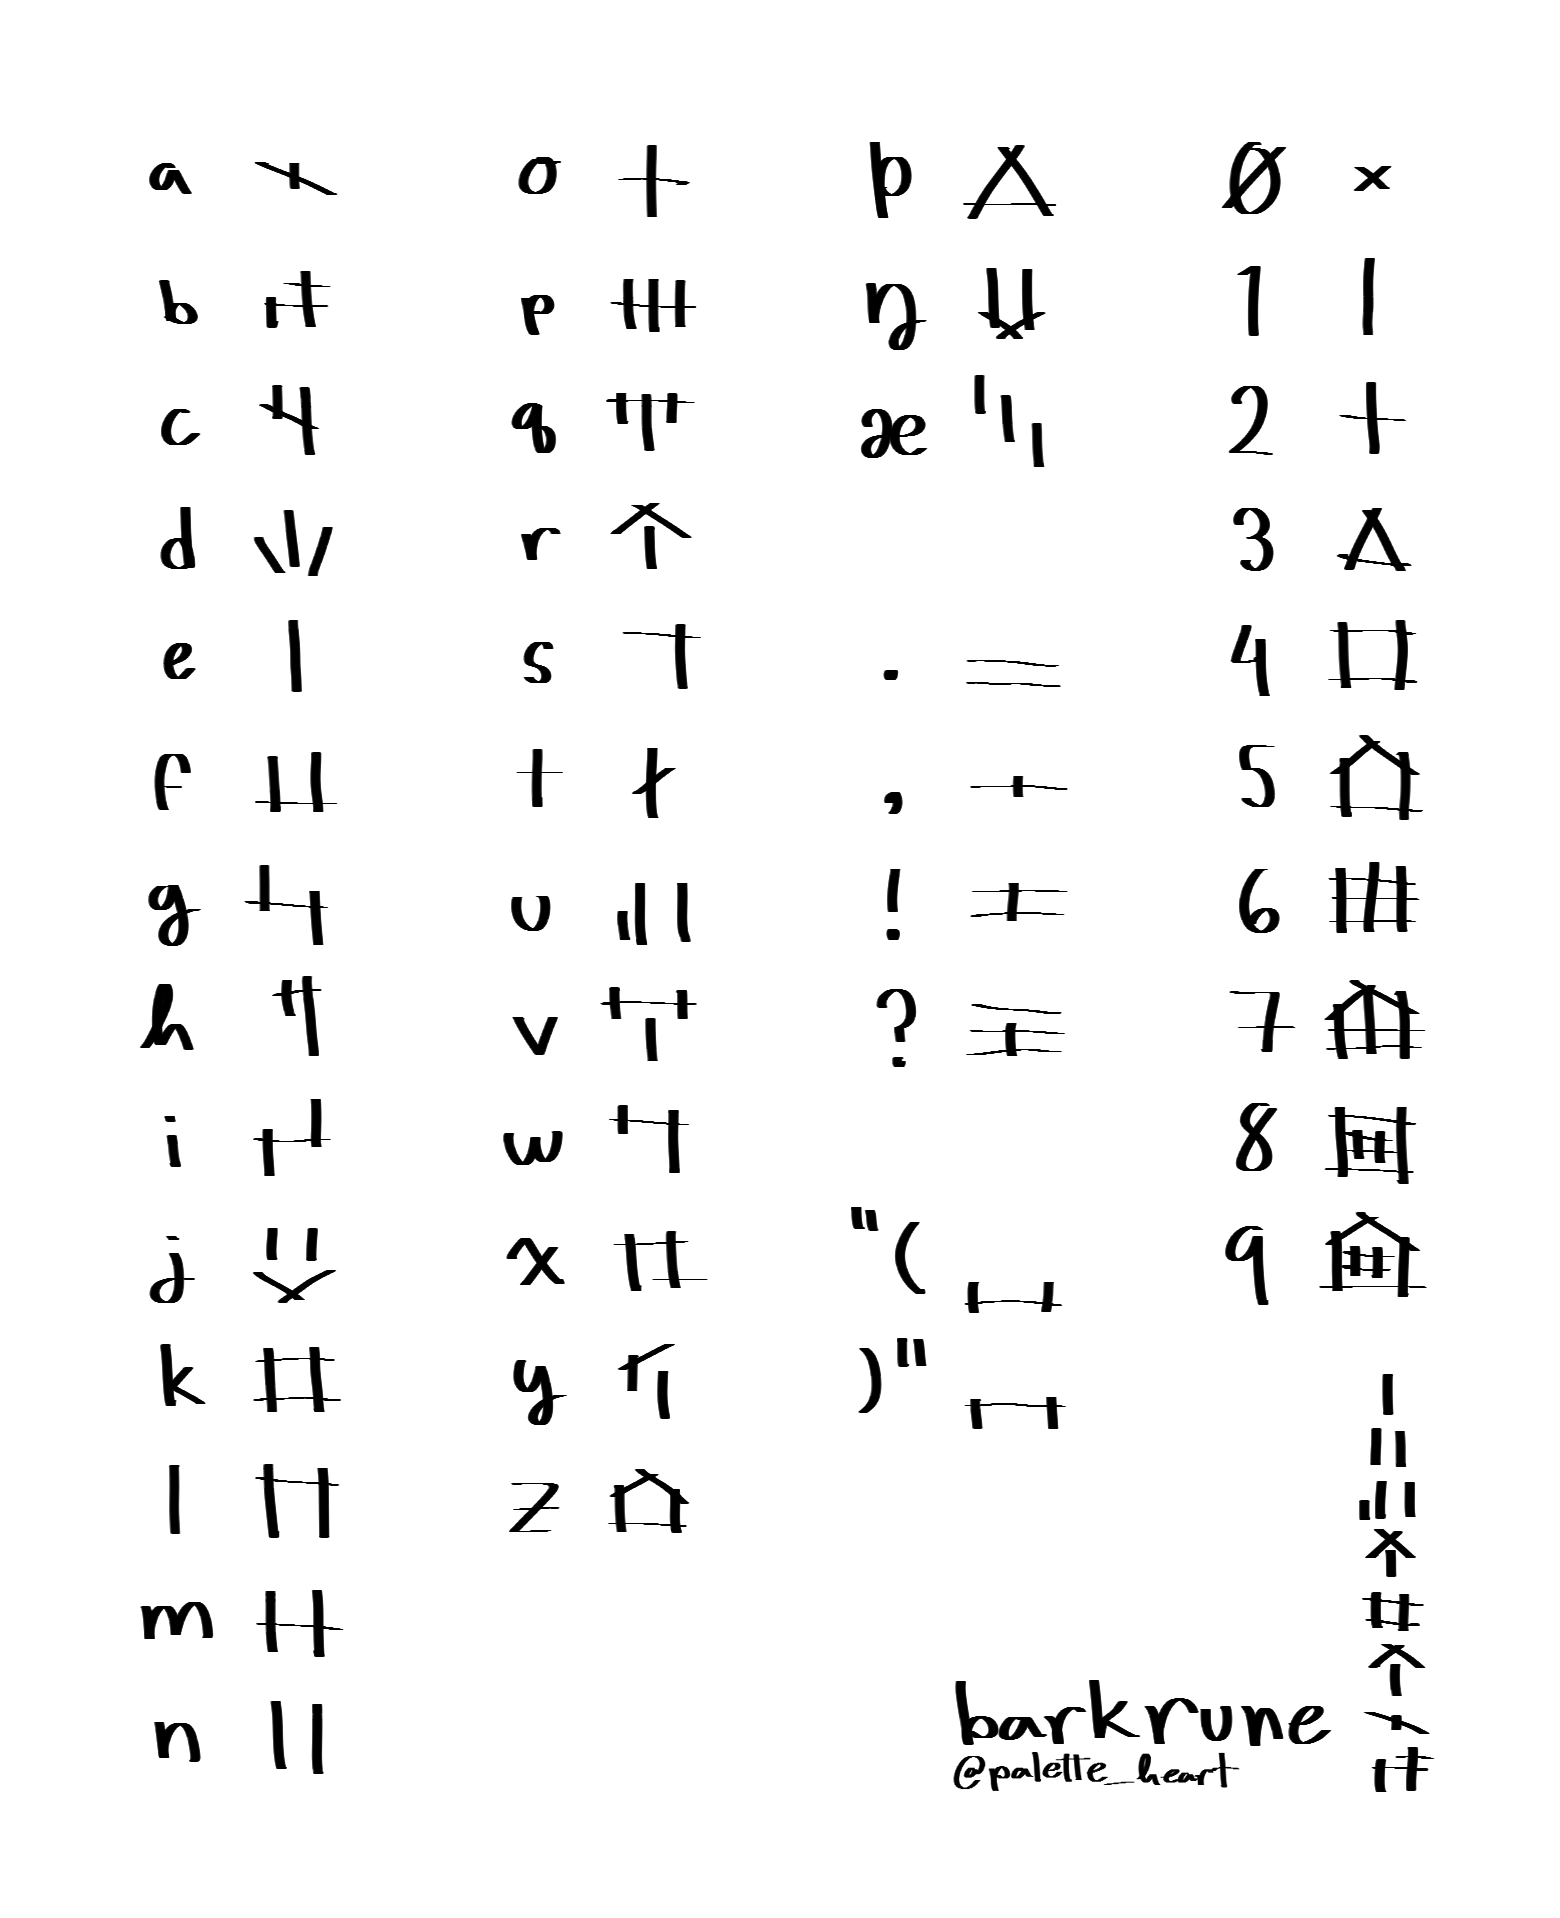 a
b
c
d
e
f
g
h
i
j
k
l
m
n
o
p
q
r
s
t
u
v
w
x
y
z
þ
ŋ
æ
.
,
!
?
"(
)"
0
1
2
3
4
5
6
7
8
9
barkrune
@palette_heart